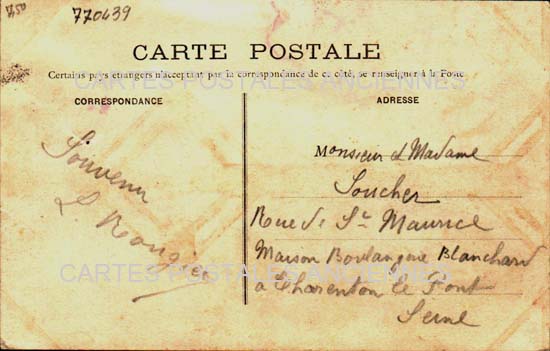 750
770439
CARTE POSTALE
Certains pays étrangers n'acceptant pas la correspondance de ce côté, se renseigner à la Poste
CARTES POSTALES ANCIENNES
CORRESPONDANCE
Souvenir
L. Rougier
ADRESSE
Monsieur et Madame
Soucher
Rue de St Maurice
Maison Boulangerie Blanchard
a Charenton le Pont
Seine
CARTES POSTALES ANCIENNES